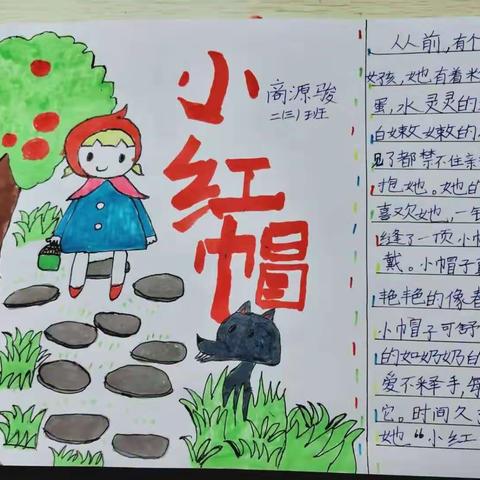 小红帽
商源骏
二(三)班
从前,有个
女孩,她有着米
蛋,水灵灵的
白嫩嫩的
见了都禁不住亲
抱她。她的
喜欢她,一
缝了一顶小
戴。小帽子
艳艳的像春
小帽子可舒
的如奶奶的
爱不释手,
它。时间久
她“小红